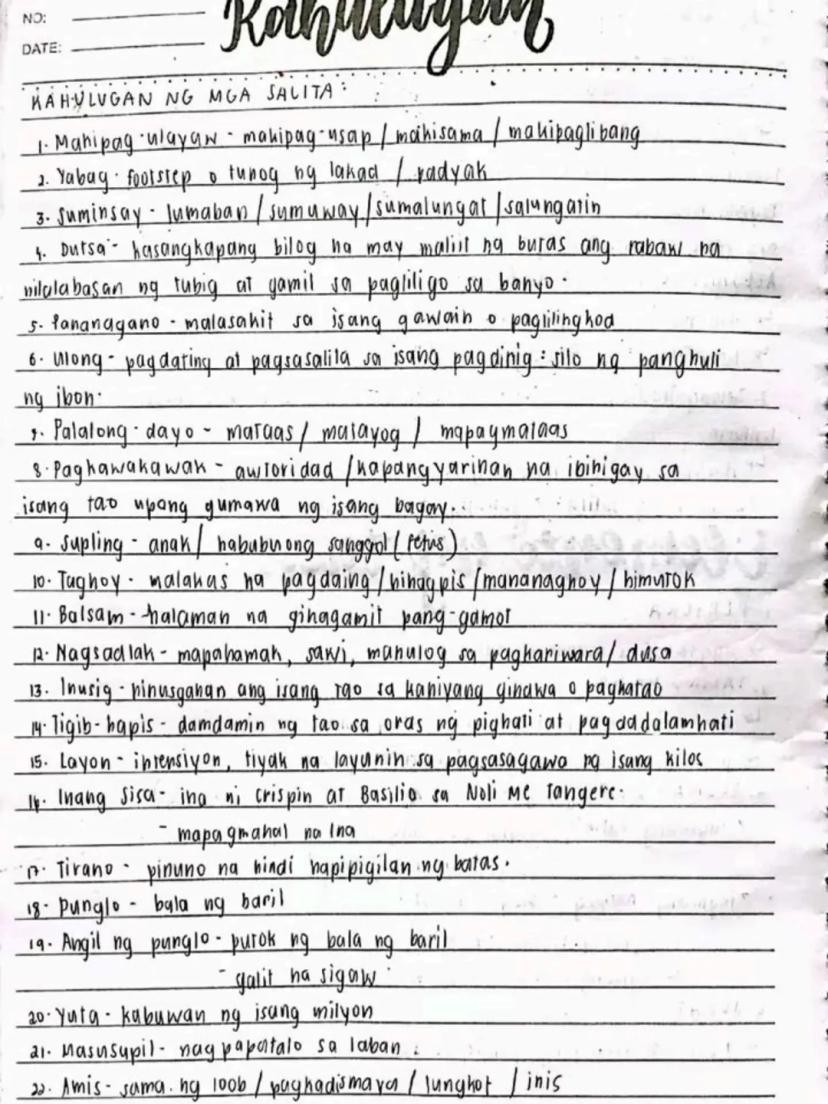 NO:
DATE:
Kahulugan
KAHULUGAN NG MGA SALITA:
1. Makipag-ulayaw - makipag-usap / makisama / makipaglibang
2. Yabag - footstep o tunog ng lakad / yadyak
3. Suminsay - lumaban / sumuway / sumalungat / salungatin
4. Dutsa - kasangkapang bilog na may maliit na butas ang ibabaw na
nilalabasan ng tubig at gamit sa pagliligo sa banyo.
5. Pananagano - malasakit sa isang gawain o paglilingkod
6. Ulong - pagdating at pagsasalita sa isang pagdinig : silo ng panghuli
ng ibon.
7. Palalong-dayo - mataas / matayog / mapagmataas
8. Paghawakawak - awtoridad / kapangyarihan na ibinigay sa
isang tao upang gumawa ng isang bagay.
9. Supling - anak / nabubuong sanggol (fetus)
10. Taghoy - malakas na pagdaing / hinagpis / mananaghoy / himutok
11. Balsam - halaman na ginagamit pang-gamot
12. Nagsadlak - mapahamak, sawi, manulog sa pagkariwara / dusa
13. Inusig - hinusgahan ang isang tao sa kaniyang ginawa o pagkatao
14. Tigib-hapis - damdamin ng tao sa oras ng pighati at pagdadalamhati
15. Layon - intensiyon, tiyak na layunin sa pagsasagawa ng isang kilos
16. Inang Sisa - ina ni Crispin at Basilio sa Noli Me Tangere.
- mapagmahal na Ina
17. Tirano - pinuno na hindi napipigilan ng batas.
18. Punglo - bala ng baril
19. Angil ng punglo - putok ng bala ng baril
- galit na sigaw
20. Yuta - kabuwan ng isang milyon
21. Masusupil - nagpapatalo sa laban
22. Amis - sama ng loob / paghadismaya / lungkot / inis